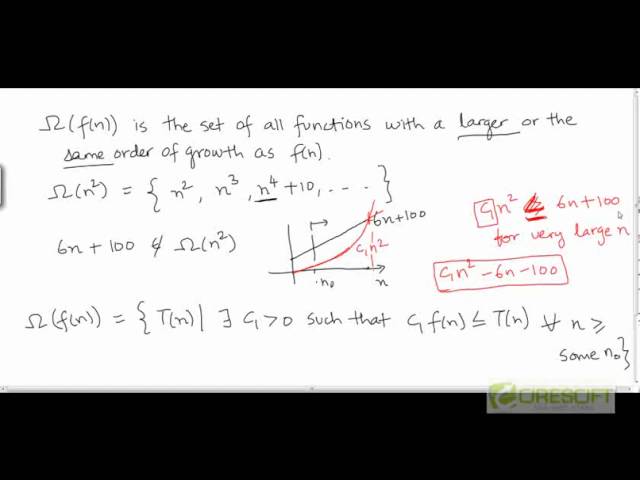 Ω(f(n)) is the set of all functions with a larger or the
same order of growth as f(n).
Ω(n²) = { n², n³, n⁴+10, .... }
6n+100
C₁n² ≤ 6n+100
6n+100 ∉ Ω(n²)
C₁n²
for very large n
n₀
n
C₁n² - 6n - 100
Ω(f(n)) = { T(n) | ∃ C₁>0 such that C₁f(n) ≤ T(n) ∀ n ≥
some n₀}
CIRESOFT